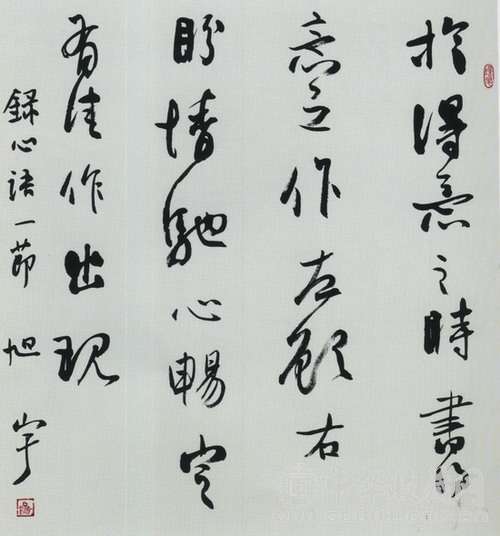 於得意之時書
意之作左顧右
盼情馳心暢定
有佳作出現
録心語一節 旭宇